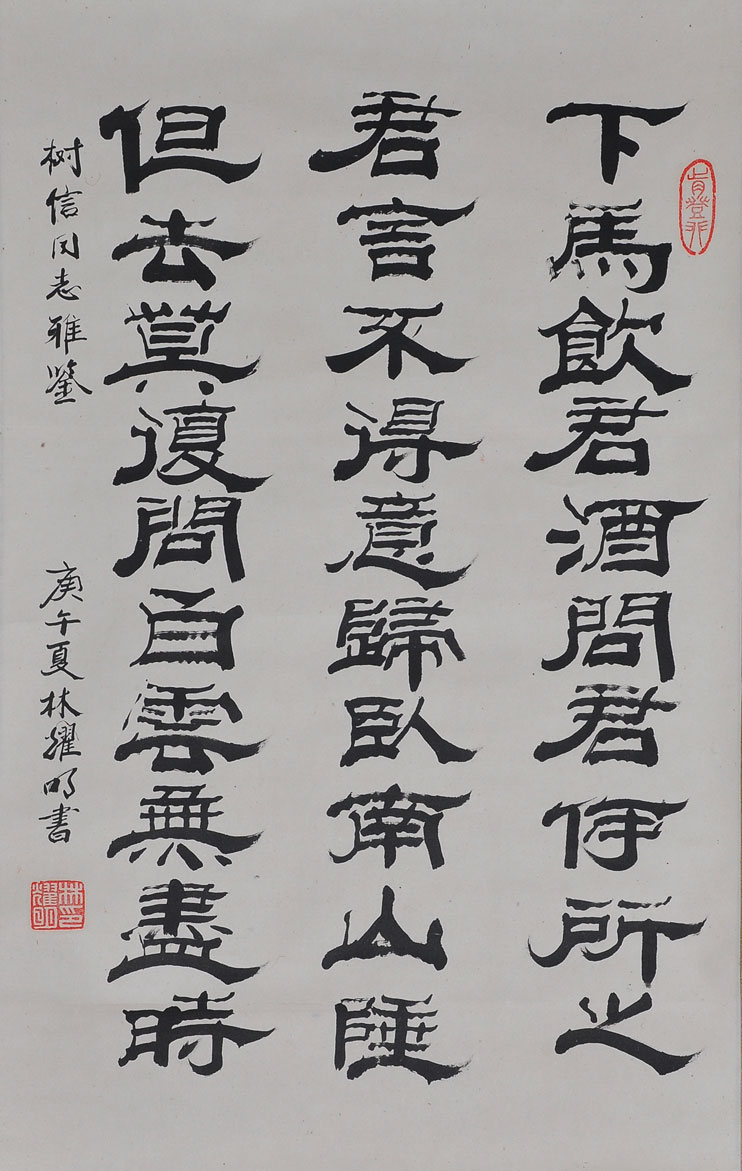 下馬飲君酒問君何所之
君言不得意歸臥南山陲
但去莫復問白雲無盡時
树信同志雅鑒
庚午夏林耀明书